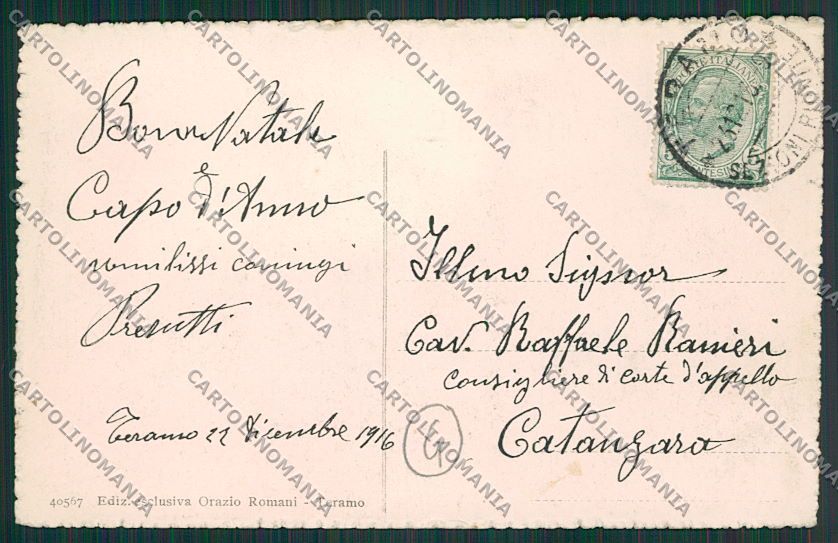 Buon Natale
e
Capo d'Anno
umilissi coniugi
Presutti
Teramo 22 dicembre 1916
40567 Ediz. esclusiva Orazio Romani - Teramo
TERAMO
Illmo Signor
Cav. Raffaele Ranieri
Consigliere di corte d'appello
Catanzaro
CARTOLINOMANIA